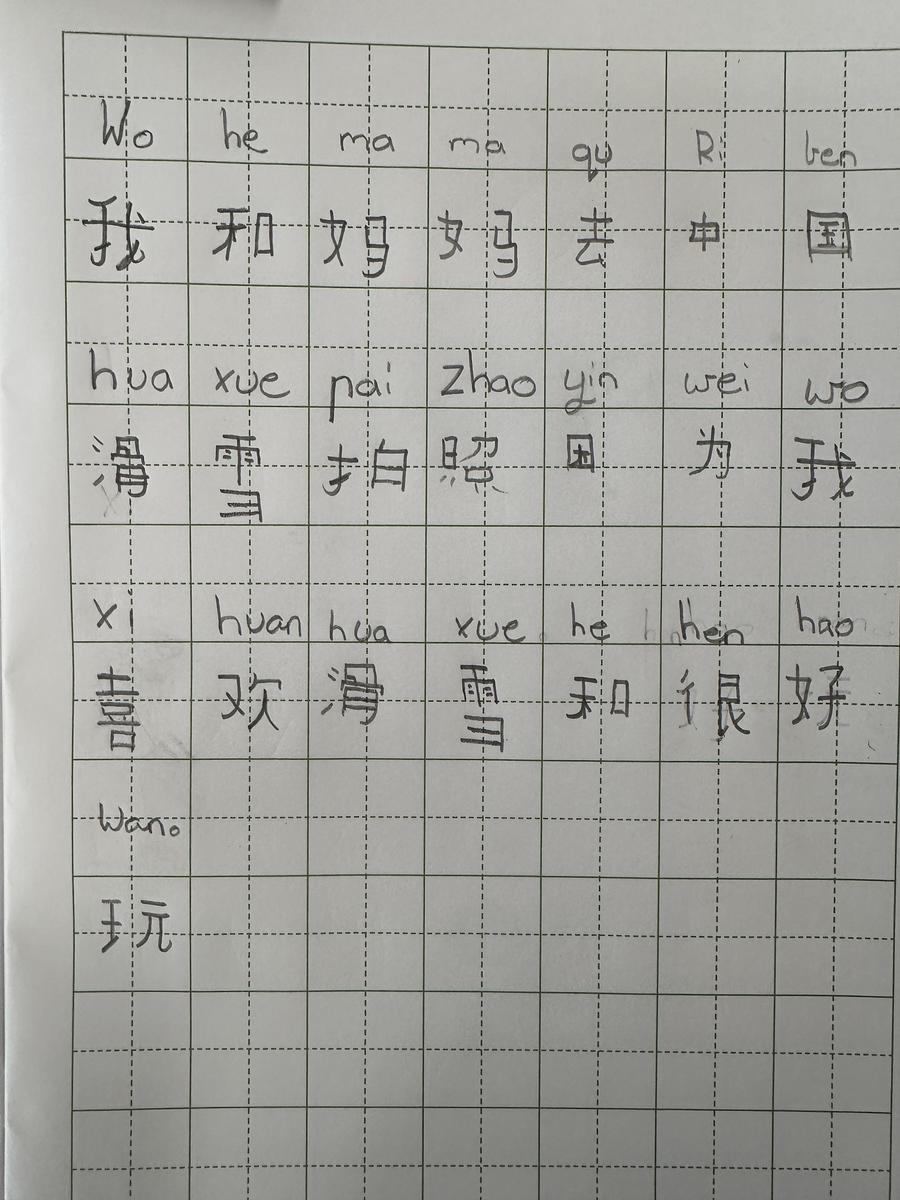 Wo he ma ma qu Ri ben
我 和 妈 妈 去 中 国
hua xue pai zhao yin wei wo
滑 雪 拍 照 因 为 我
xi huan hua xue he hen hao
喜 欢 滑 雪 和 很 好
wan。
玩